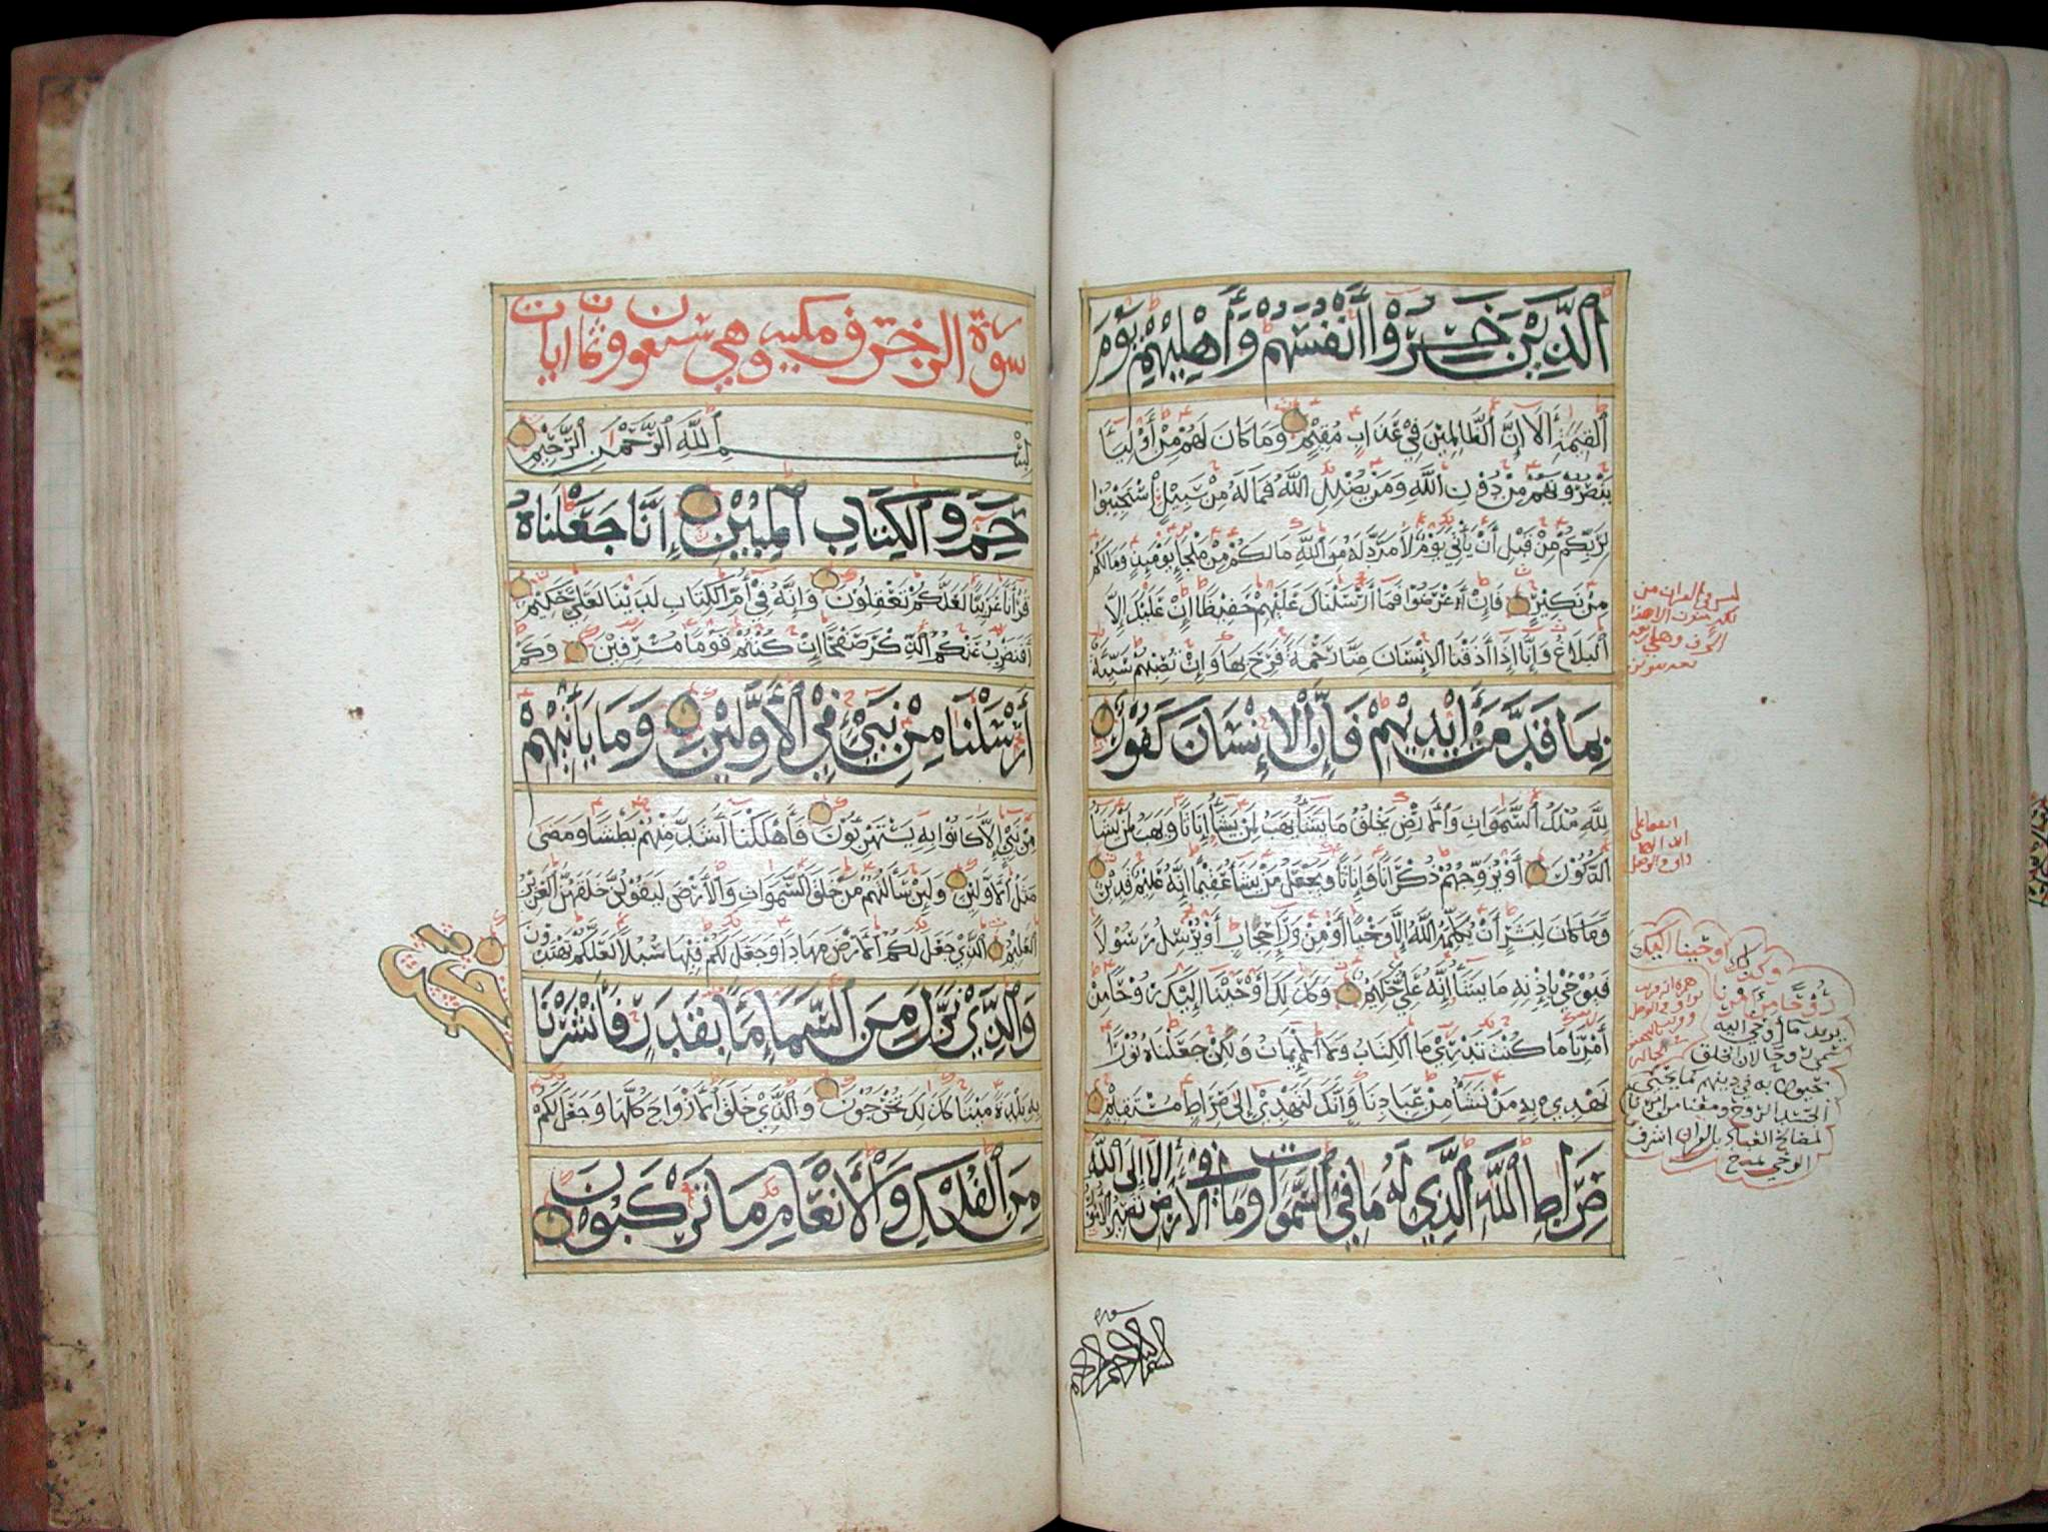 ٱلَّذِيْنَ خَسِرُوْا أَنْفُسَهُمْ وَأَهْلِيْهِمْ يَوْمَ
ٱلْقِيَمَةِ أَلَا إِنَّ ٱلظَّالِمِيْنَ فِيْ عَذَابٍ مُقِيْمٍ وَمَا كَانَ لَهُمْ مِنْ أَوْلِيَآءَ
يَنْصُرُوْنَهُمْ مِنْ دُوْنِ ٱللَّهِ وَمَنْ يُضْلِلِ ٱللَّهُ فَمَا لَهُ مِنْ سَبِيْلٍ ٱسْتَجِيْبُوْا
لِرَبِّكُمْ مِنْ قَبْلِ أَنْ يَأْتِيَ يَوْمٌ لَا مَرَدَّ لَهُ مِنَ ٱللَّهِ مَا لَكُمْ مِنْ مَلْجَإٍ يَوْمَئِذٍ وَمَا لَكُمْ
مِنْ نَكِيْرٍ فَإِنْ أَعْرَضُوْا فَمَا أَرْسَلْنَاكَ عَلَيْهِمْ حَفِيْظًا إِنْ عَلَيْكَ إِلَّا
ٱلْبَلَاغُ وَإِنَّا إِذَا أَذَقْنَا ٱلْإِنْسَانَ مِنَّا رَحْمَةً فَرِحَ بِهَا وَإِنْ تُصِبْهُمْ سَيِّئَةٌ
بِمَا قَدَّمَتْ أَيْدِيْهِمْ فَإِنَّ ٱلْإِنْسَانَ كَفُوْرٌ
لِلَّهِ مُلْكُ ٱلسَّمَوَاتِ وَٱلْأَرْضِ يَخْلُقُ مَا يَشَآءُ يَهَبُ لِمَنْ يَشَآءُ إِنَاثًا وَيَهَبُ لِمَنْ يَشَآءُ
ٱلذُّكُوْرَ أَوْ يُزَوِّجُهُمْ ذُكْرَانًا وَإِنَاثًا وَيَجْعَلُ مَنْ يَشَآءُ عَقِيْمًا إِنَّهُ عَلِيْمٌ قَدِيْرٌ
وَمَا كَانَ لِبَشَرٍ أَنْ يُكَلِّمَهُ ٱللَّهُ إِلَّا وَحْيًا أَوْ مِنْ وَرَآءِ حِجَابٍ أَوْ يُرْسِلَ رَسُوْلًا
فَيُوْحِيَ بِإِذْنِهِ مَا يَشَآءُ إِنَّهُ عَلِيٌّ حَكِيْمٌ وَكَذَلِكَ أَوْحَيْنَا إِلَيْكَ رُوْحًا مِنْ
أَمْرِنَا مَا كُنْتَ تَدْرِيْ مَا ٱلْكِتَابُ وَلَا ٱلْإِيْمَانُ وَلَكِنْ جَعَلْنَاهُ نُوْرًا
نَهْدِيْ بِهِ مَنْ نَشَآءُ مِنْ عِبَادِنَا وَإِنَّكَ لَتَهْدِيْ إِلَى صِرَاطٍ مُسْتَقِيْمٍ
صِرَاطِ ٱللَّهِ ٱلَّذِيْ لَهُ مَا فِيْ ٱلسَّمَوَاتِ وَمَا فِيْ ٱلْأَرْضِ أَلَا إِلَى ٱللَّهِ تَصِيْرُ ٱلْأُمُوْرُ
وكذلك أوحينا إليك
رُوْحًا مِنْ أَمْرِنَا
يريد ما أوحي اليه
سورة الزخرف مكية وهي سبعون وثمان ايات
بِسْمِ ٱللَّهِ ٱلرَّحْمَنِ ٱلرَّحِيْمِ
حَمٓ وَٱلْكِتَابِ ٱلْمُبِيْنِ إِنَّا جَعَلْنَاهُ
قُرْأَنًا عَرَبِيًّا لَعَلَّكُمْ تَعْقِلُوْنَ وَإِنَّهُ فِيْ أُمِّ ٱلْكِتَابِ لَدَيْنَا لَعَلِيٌّ حَكِيْمٌ
أَفَنَضْرِبُ عَنْكُمُ ٱلذِّكْرَ صَفْحًا إِنْ كُنْتُمْ قَوْمًا مُسْرِفِيْنَ وَكَمْ
أَرْسَلْنَا مِنْ نَبِيٍّ فِيْ ٱلْأَوَّلِيْنَ وَمَا يَأْتِيْهِمْ
مِنْ نَبِيٍّ إِلَّا كَانُوْا بِهِ يَسْتَهْزِئُوْنَ فَأَهْلَكْنَا أَشَدَّ مِنْهُمْ بَطْشًا وَمَضَى
مَثَلُ ٱلْأَوَّلِيْنَ وَلَئِنْ سَأَلْتَهُمْ مَنْ خَلَقَ ٱلسَّمَوَاتِ وَٱلْأَرْضَ لَيَقُوْلُنَّ خَلَقَهُنَّ ٱلْعَزِيْزُ
ٱلْعَلِيْمُ ٱلَّذِيْ جَعَلَ لَكُمُ ٱلْأَرْضَ مِهَادًا وَجَعَلَ لَكُمْ فِيْهَا سُبُلًا لَعَلَّكُمْ تَهْتَدُوْنَ
وَٱلَّذِيْ نَزَّلَ مِنَ ٱلسَّمَآءِ مَآءً بِقَدَرٍ فَأَنْشَرْنَا
بِهِ بَلْدَةً مَيْتًا كَذَلِكَ تُخْرَجُوْنَ وَٱلَّذِيْ خَلَقَ ٱلْأَزْوَاجَ كُلَّهَا وَجَعَلَ لَكُمْ
مِنَ ٱلْفُلْكِ وَٱلْأَنْعَامِ مَا تَرْكَبُوْنَ